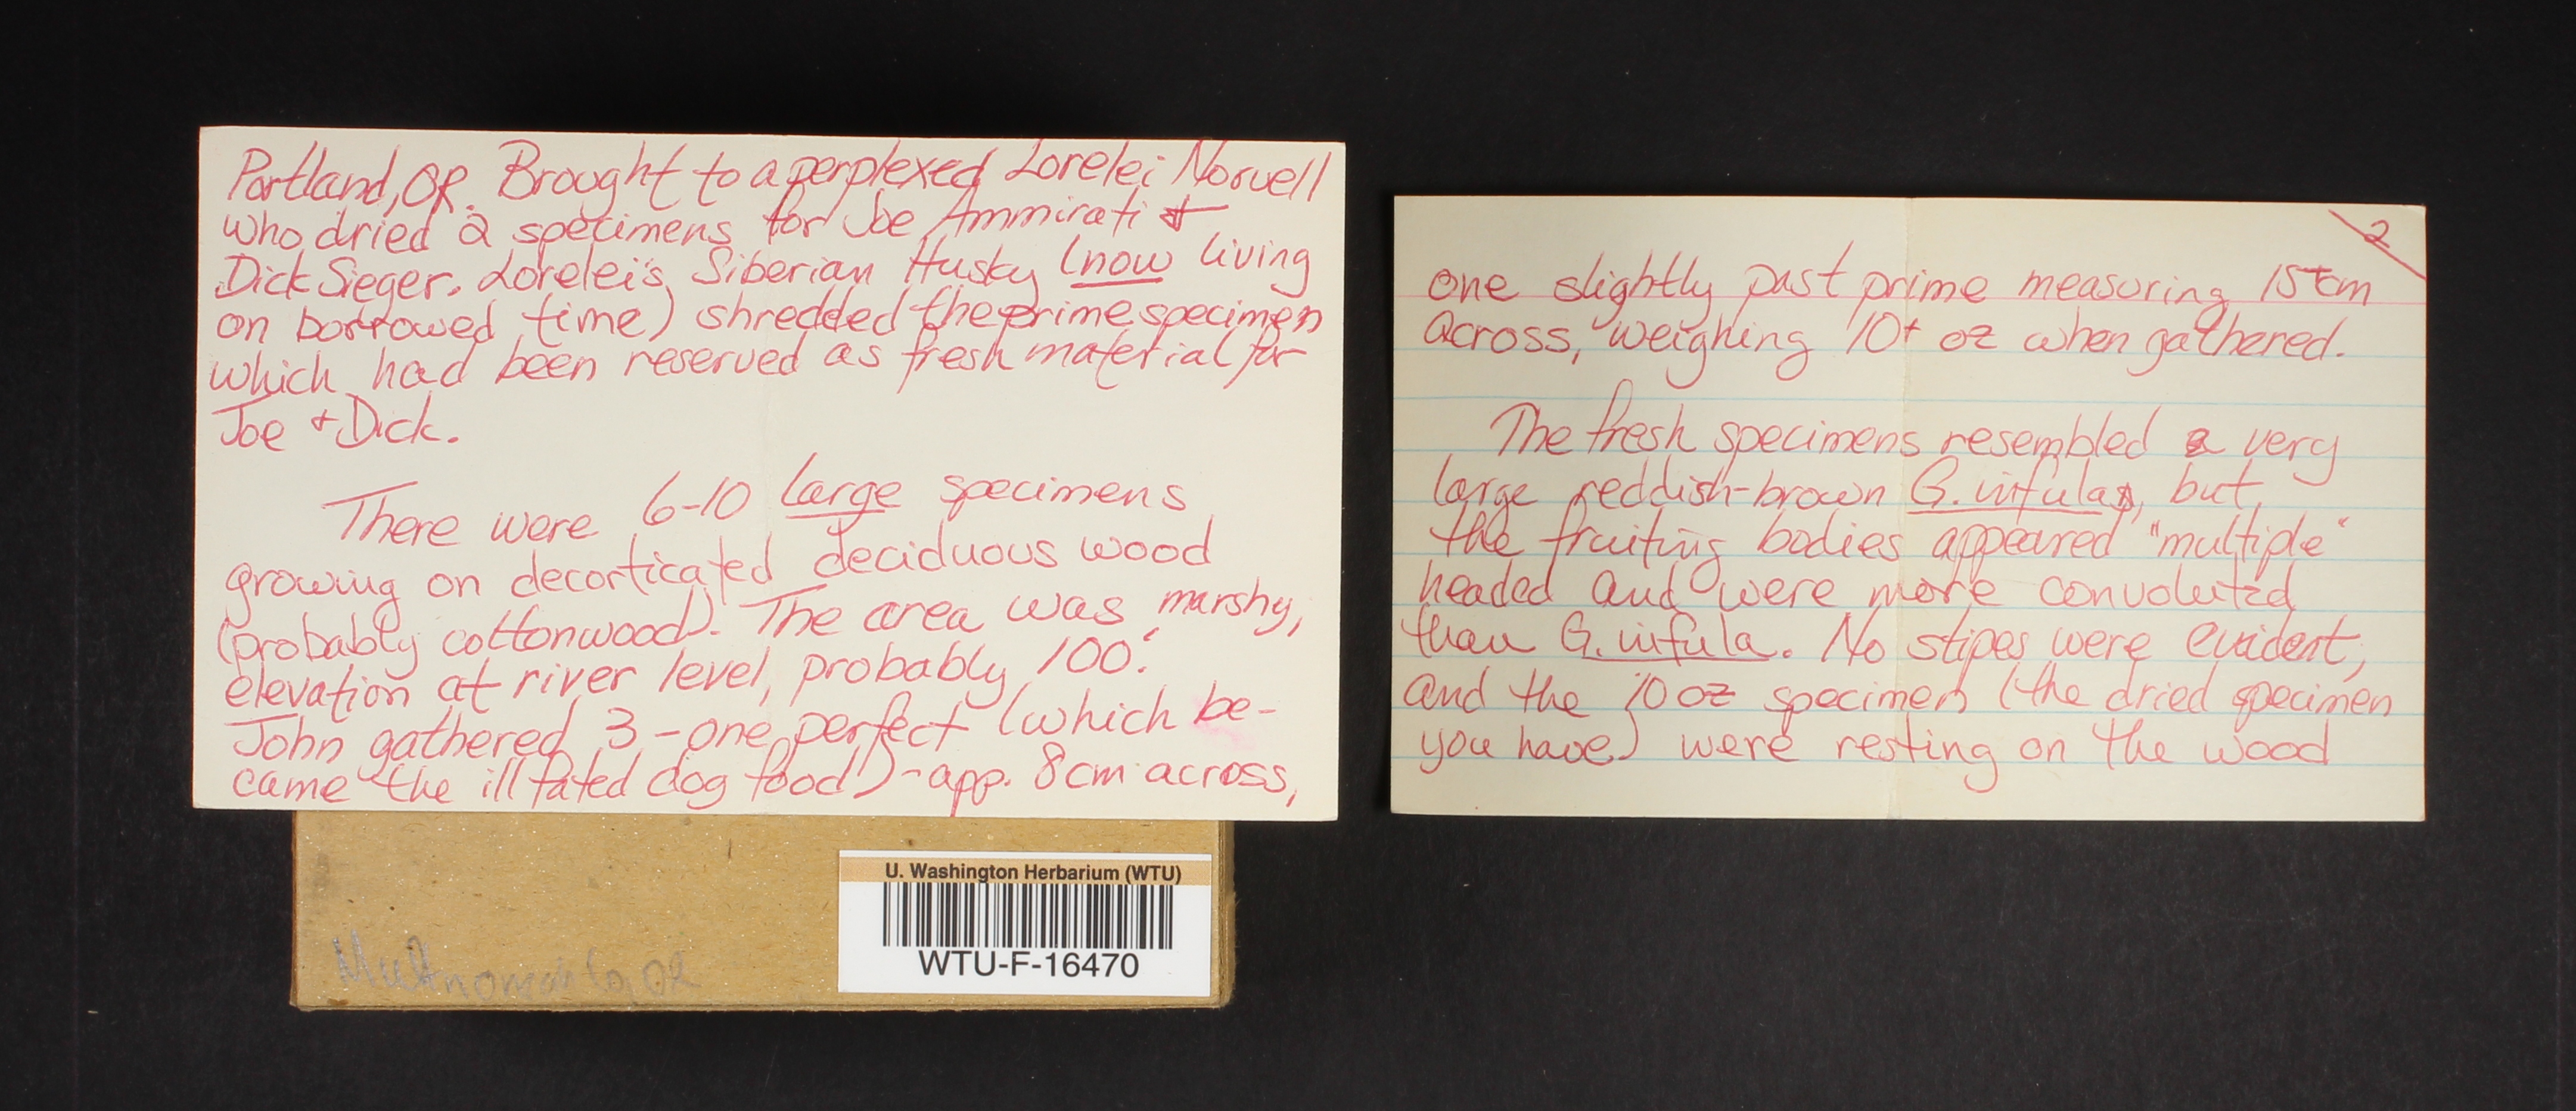 Portland, OR. Brought to a perplexed Lorelei Norvell
who dried 2 specimens for Joe Ammirati +
Dick Sieger. Lorelei's Siberian Husky (now living
on borrowed time) shredded the prime specimen
which had been reserved as fresh material for
Joe + Dick.
There were 6-10 large specimens
growing on decorticated deciduous wood
(probably cottonwood). The area was marshy,
elevation at river level, probably 100'.
John gathered 3 - one perfect (which be-
came the ill fated dog food) - app. 8 cm across,
2
one slightly past prime measuring 15 cm
across, weighing 10+ oz when gathered.
The fresh specimens resembled a very
large reddish-brown G. infula, but
the fruiting bodies appeared "multiple"
headed and were more convoluted
than G. infula. No stipes were evident,
and the 10 oz specimen (the dried specimen
you have) were resting on the wood
U. Washington Herbarium (WTU)
WTU-F-16470
Multnomah Co, OR